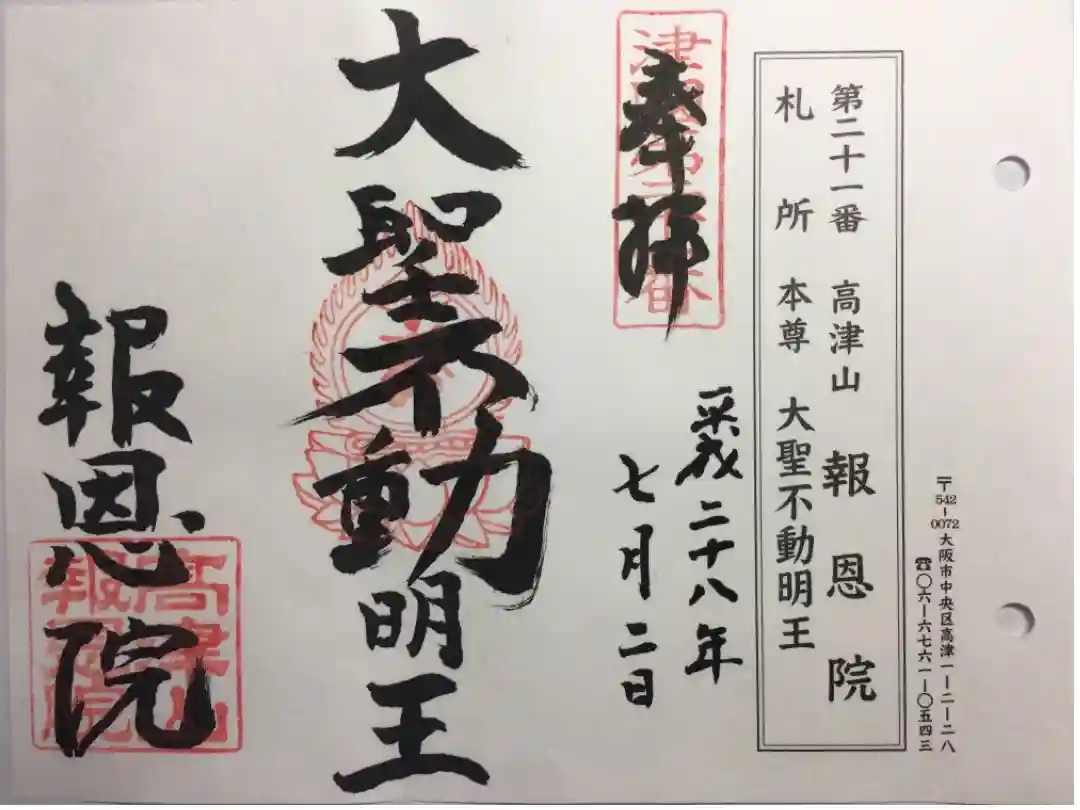 〒542-0072 大阪市中央区高津一ー二ー二八
☎〇六ー六七六一ー〇五四三
第二十一番 高津山 報恩院
札所 本尊 大聖不動明王
奉拝
平成二十八年
七月二日
大聖不動明王
報恩院
高津山
報恩院